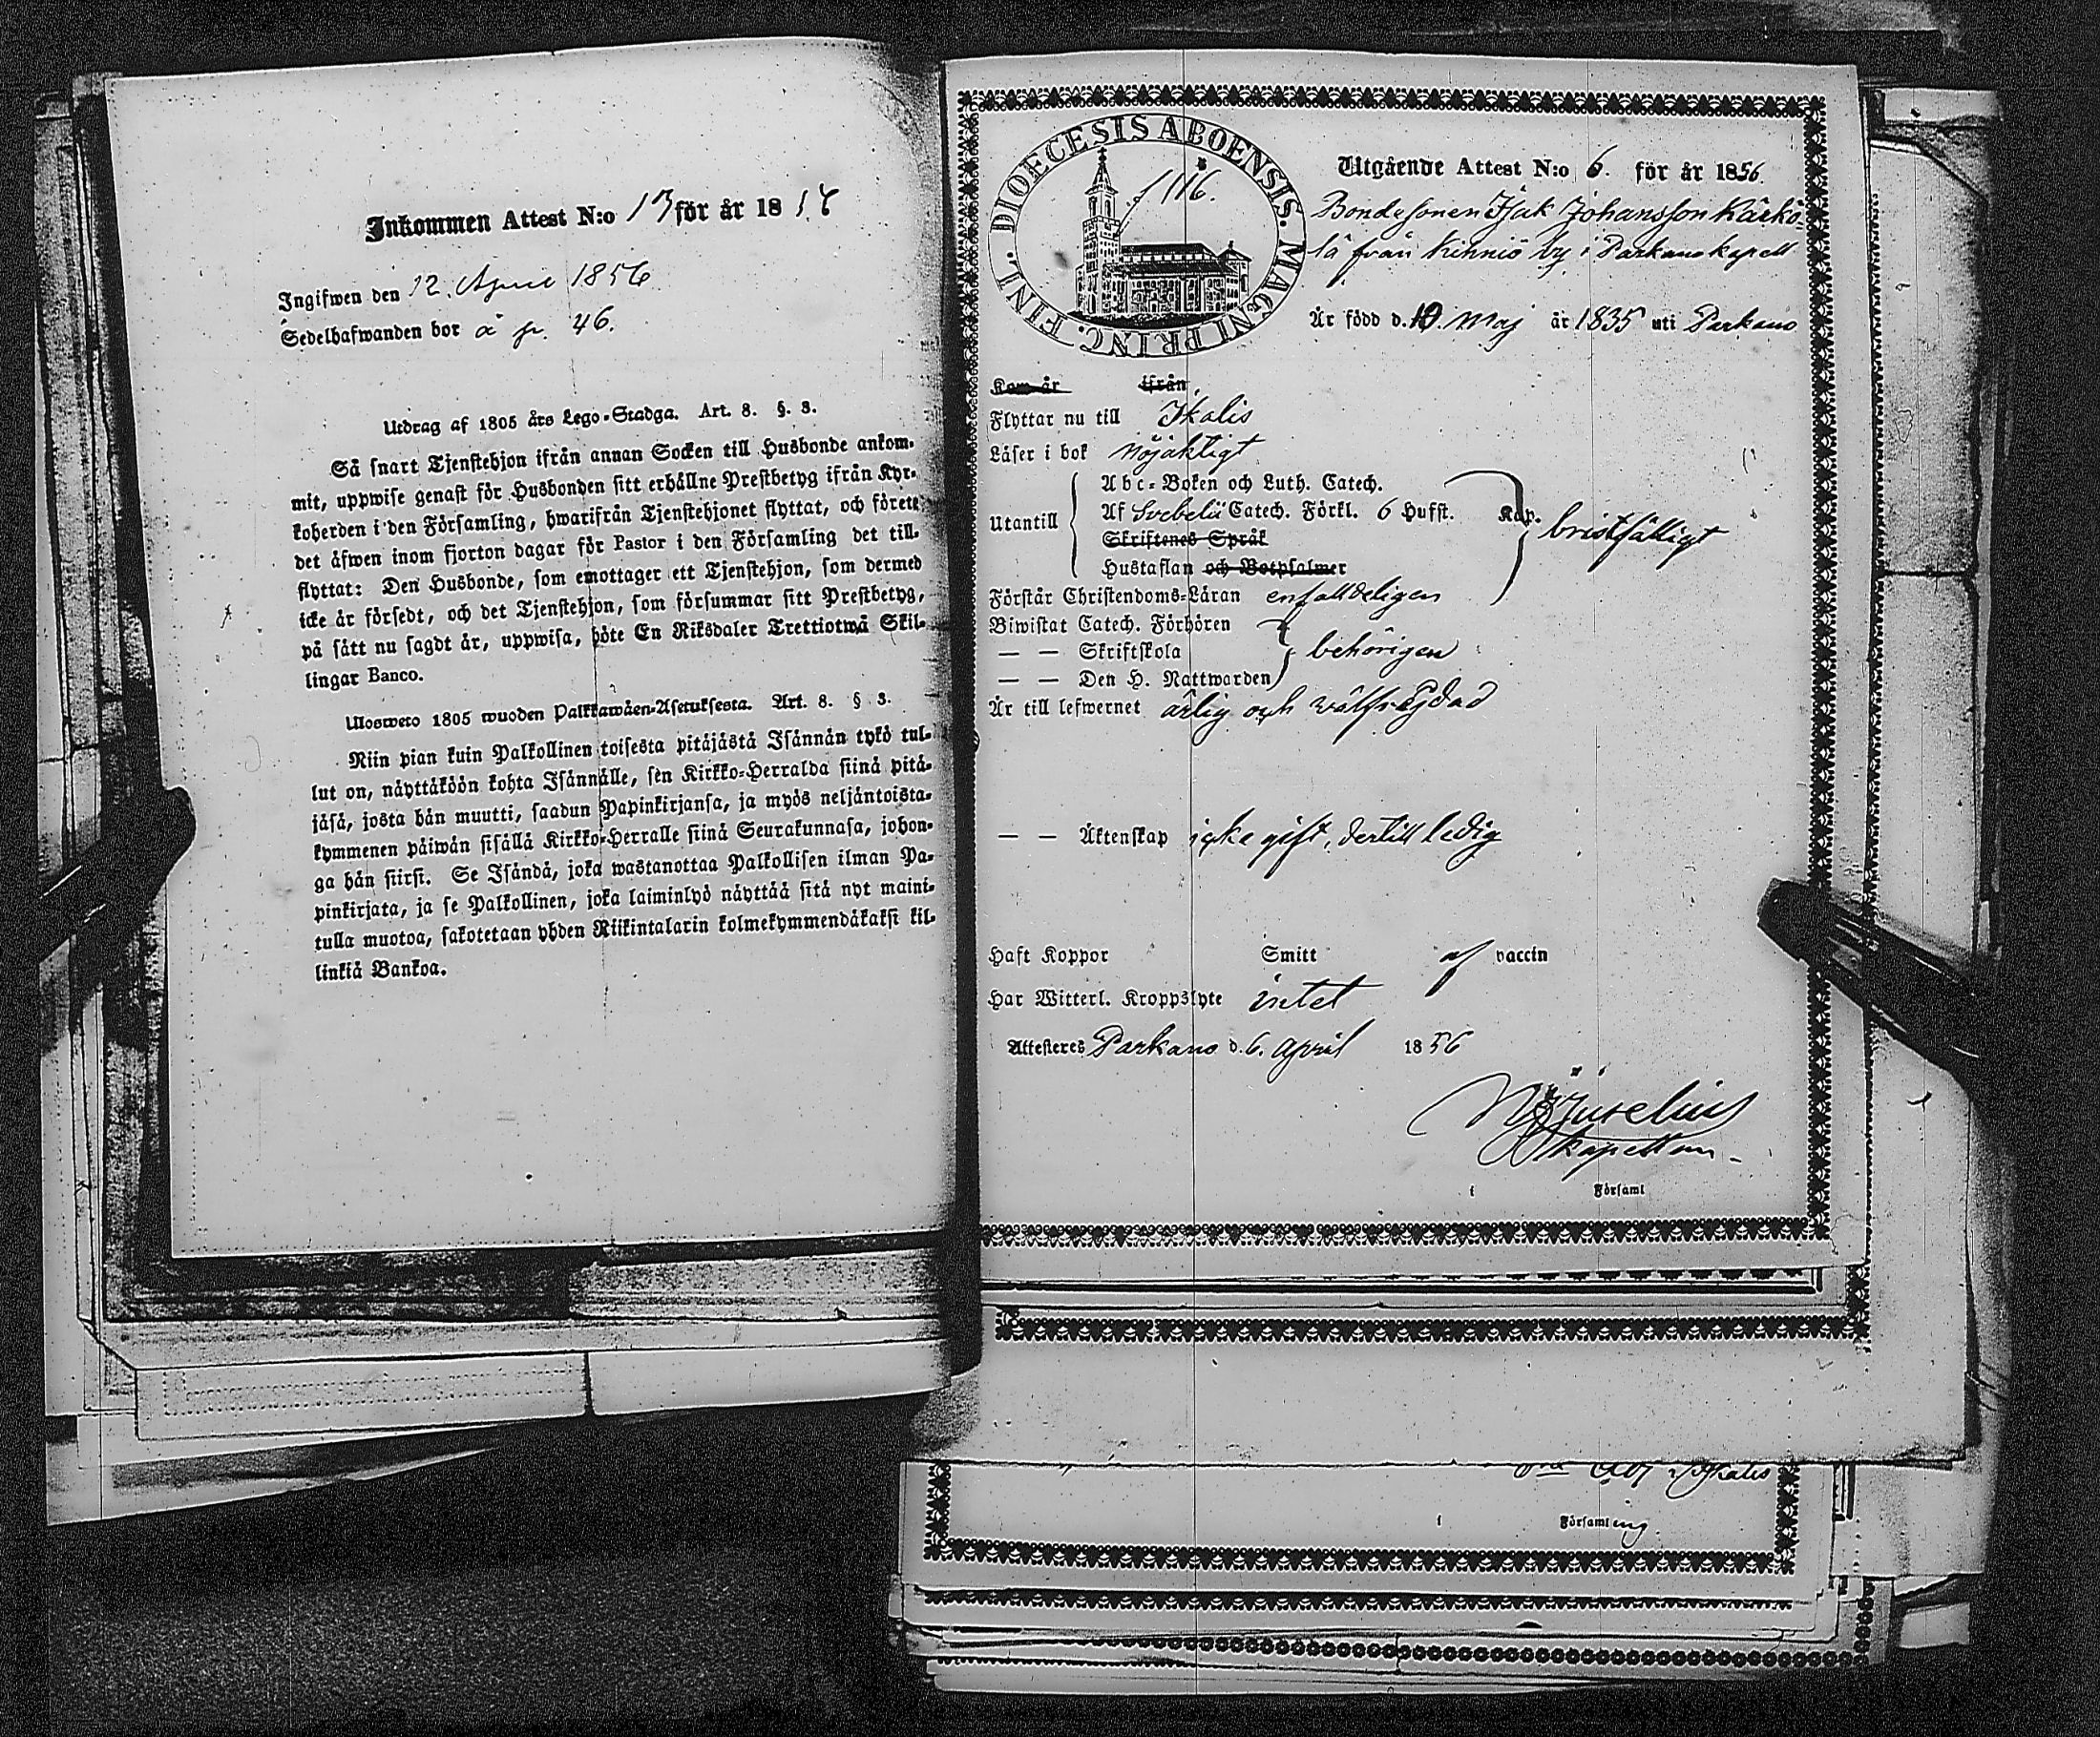 Inkommen Attest N:o 13 för år 18
Ingifwen den 12. April 1856
Sedelhafwanden bor å p. 46.
Utdrag af 1805 års Lego-Stadga. Art. 8. §. 3.
Så snart Tjenstehjon ifrån annan Socken till Husbonde ankom-
mit, uppwise genast för Husbonden sitt erhållne Prestbetyg ifrån Kyr-
koherden i den Församling, hwarifrån Tjenstehjonet flyttat, och förete
det äfwen inom fjorton dagar för Pastor i den Församling det till-
flyttat: Den Husbonde, som emottager ett Tjenstehjon, som dermed
icke är försedt, och det Tjenstehjon, som försummar sitt Prestbetyg,
på sätt nu sagdt är, uppwisa, böte En Riksdaler Trettiotwå Skil-
lingar Banco.
Ulosweto 1805 wuoden Palkkawäen-Asetuksesta. Art. 8. § 3.
Niin pian kuin Palkollinen toisesta pitäjästä Isännän tykö tul-
lut on, näyttäköön kohta Isännälle, sen Kirkko-Herralda siinä pitä-
jäsä, josta hän muutti, saadun Papinkirjansa, ja myös neljäntoista-
kymmenen päiwän sisällä Kirkko-Herralle siinä Seurakunnasa, johon-
ga hän siirsi. Se Isändä, joka wastanottaa Palkollisen ilman Pa-
pinkirjata, ja se Palkollinen, joka laiminlyö näyttää sitä nyt maini-
tulla muotoa, sakotetaan yhden Riikintalarin kolmekymmendäkaksi kil-
linkiä Bankoa.
DIOECESIS ABOENSIS. MAGNI PRINC. FINL.
1116.
Utgående Attest N:o 6. för år 1856.
Bondesonen Isak Johansson Kärkö
lä från Kihniö by i Parkano kapell
Är född d. 10. Maj år 1835 uti Parkano
Kom år ifrån
Flyttar nu till Ikalis
Läser i bok nöjaktigt
Utantill
Abc-Boken och Luth. Catech.
Af Svebelii Catech. Förkl. 6 Hufst. Kap. bristfälligt
Skriftenes Språk
Hustaflan och Botpsalmer
Förstår Christendoms-Läran enfalldeligen
Biwistat Catech. Förhören
— — Skriftskola behörigen
— — Den H. Nattwarden
Är till lefwernet ärlig och wälfrägdad
— — Äktenskap icke gift, dertill ledig
Haft Koppor Smitt af vaccin
Har Witterl. Kroppslyte intet
Attesteres Parkano d. 6. april 1856
kapellan
i Församl
Ikalis
i Församling.